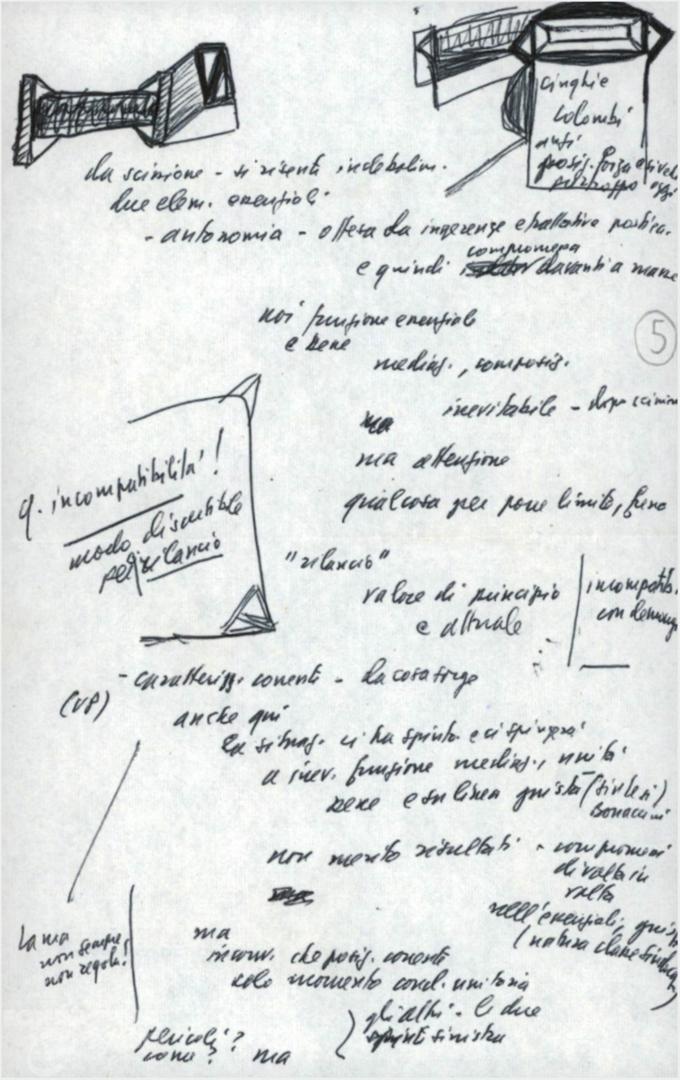 cinghie
colombi
anzi
posiz. forza
purtroppo oggi
da scissione - si risenti indebolim.
due elem. essenziali
- autonomia - offesa da ingerenze
compromessa
e quindi davanti a masse
noi funzione essenziale
e bene
mediaz., composiz.
5
inevitabile - dopo scissione
ma
ma attenzione
qualcosa per porre limite, freno
q. incompatibilità!
modo discutibile
per rilancio
"rilancio"
valore di principio
e attuale
incompatib.
con
- caratterizz. correnti - da cosa sorge
(VP)
anche qui
la situaz. ci ha spinto e ci spingerà
a funzione mediaz., unità
bene e su linea giusta (sintesi)
Bonaccini
non merito risultati - compromessi
di volta in
volta
nell'essenziali, giusti
(natura classe sindac.)
La ma
non sempre
non regola!
ma
che posiz. correnti
solo momento unitaria
gli altri - le due
sinistra
pericoli?
come? ma